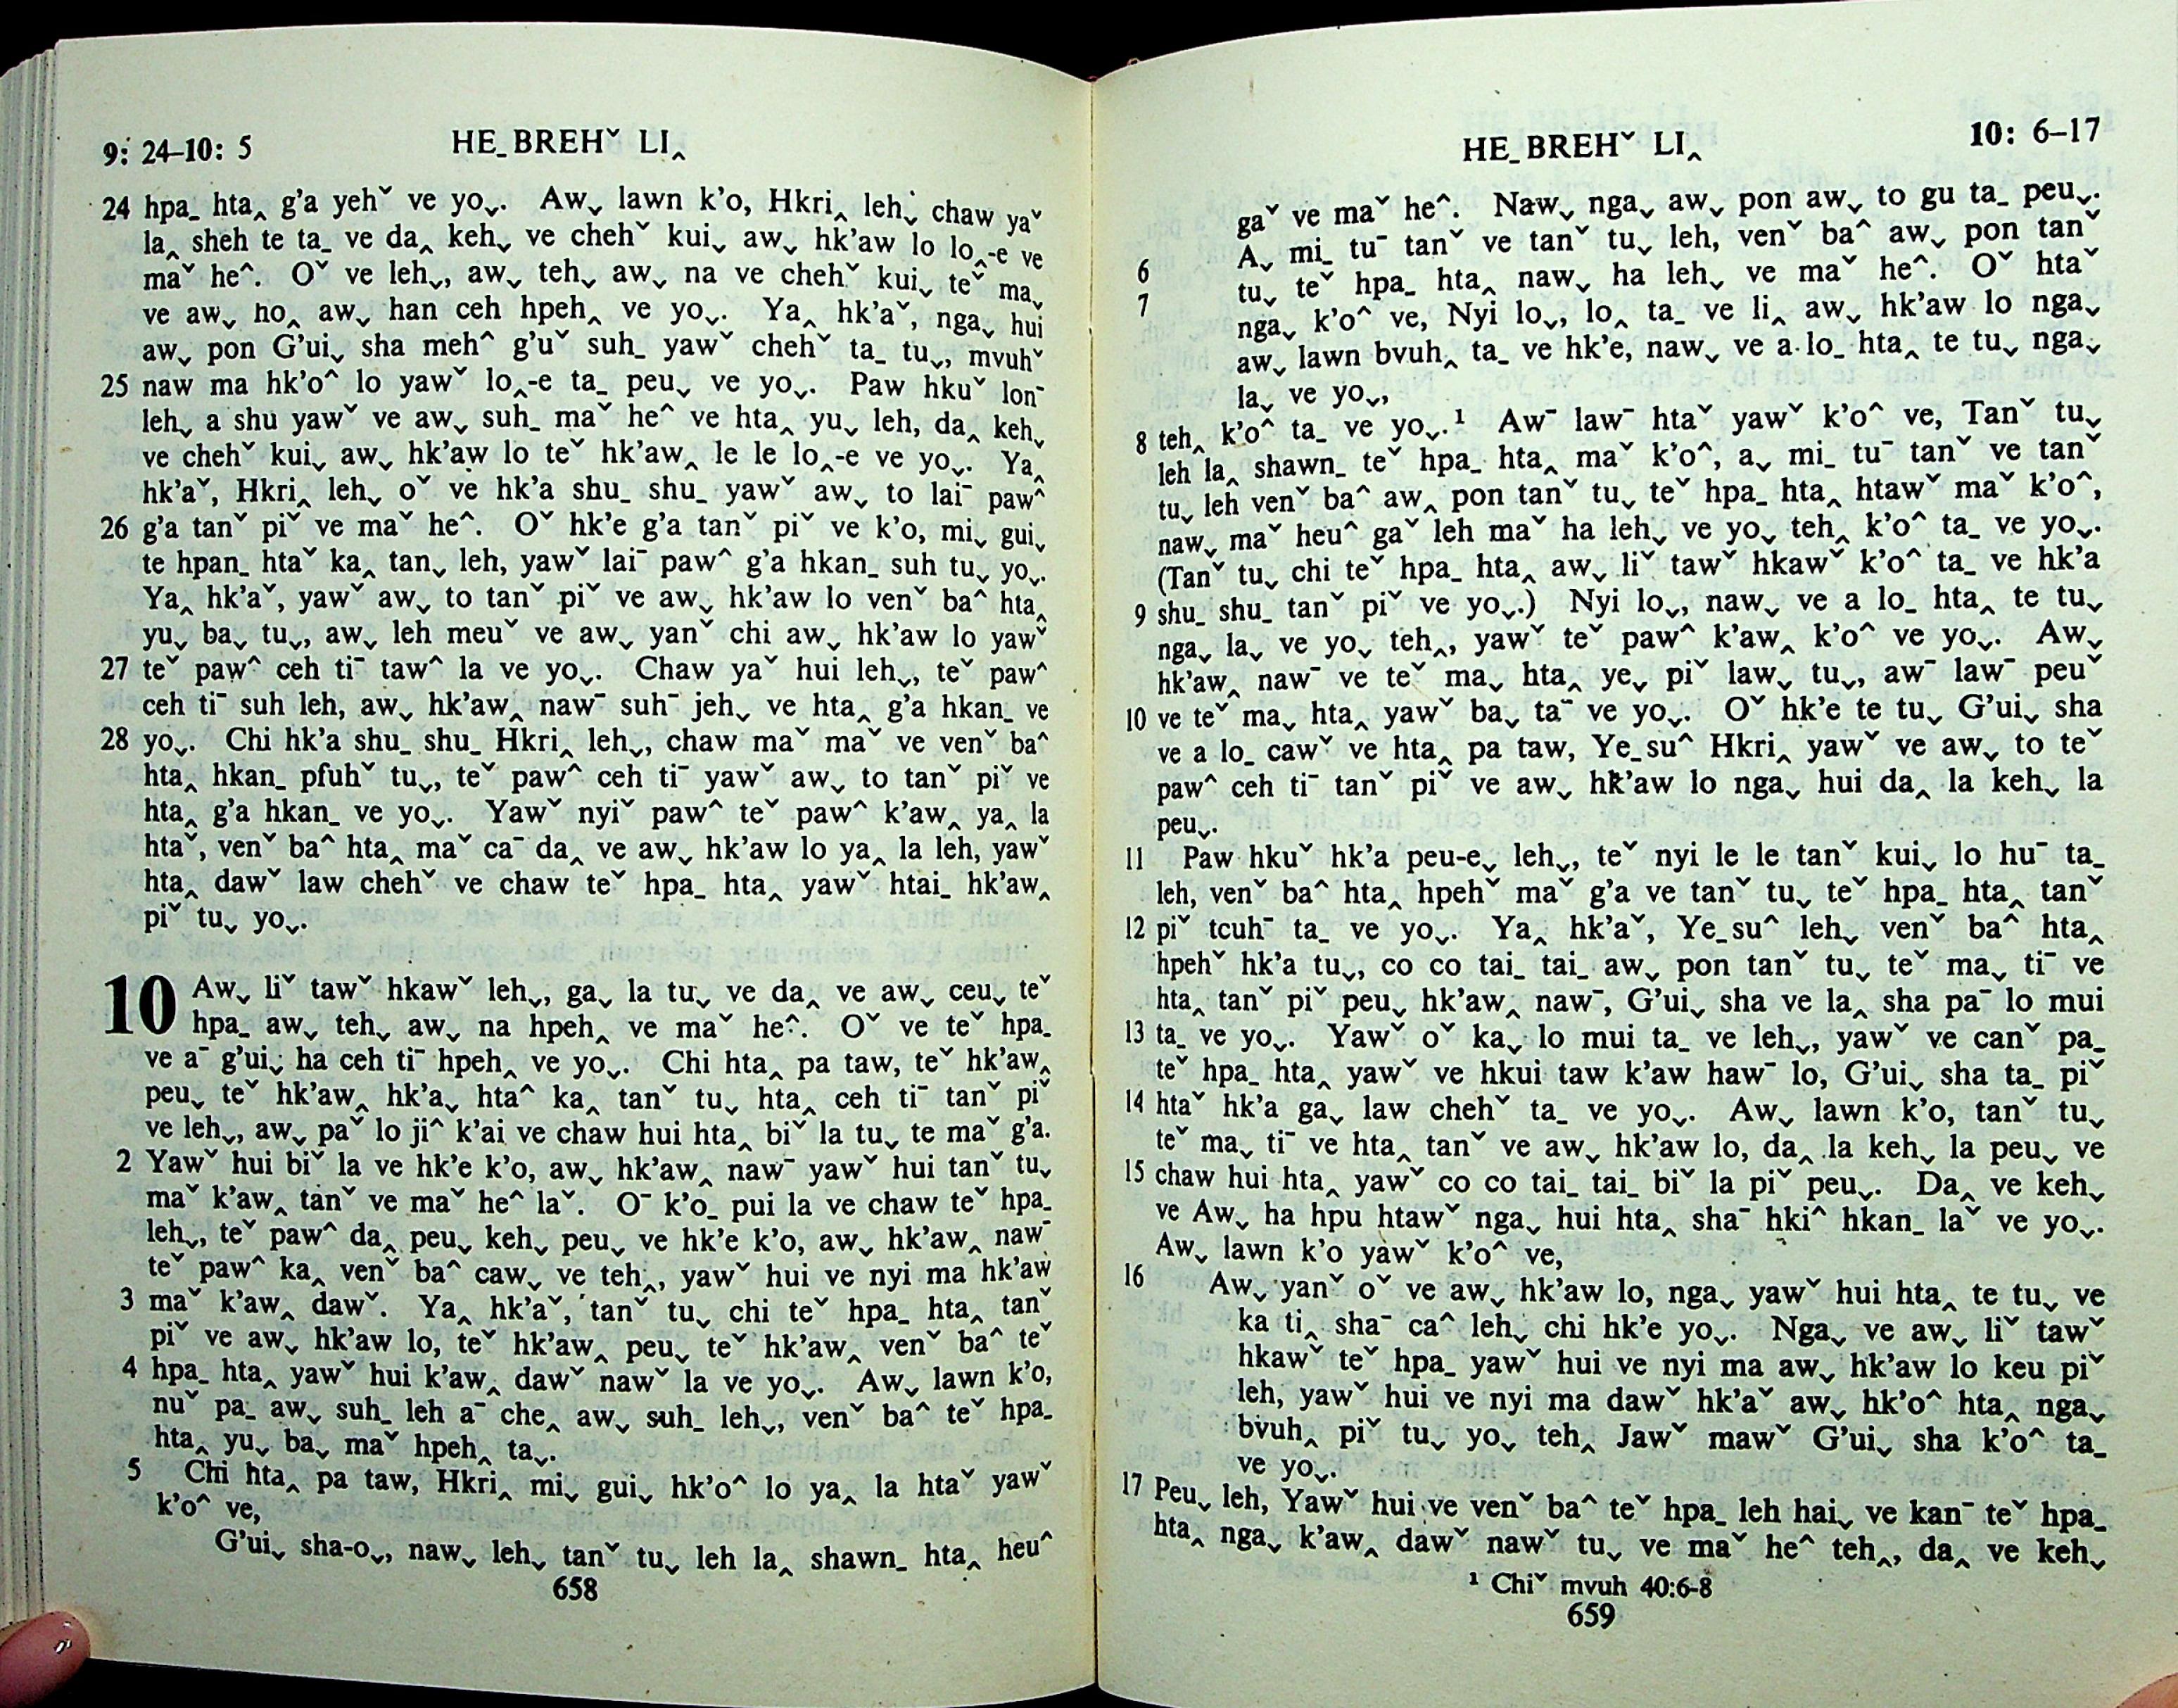 9: 24–10: 5
HE_BREHˇ LI‸
24 hpa_ hta‸ g'a yehˇ ve yoˬ. Awˬ lawn k'o, Hkri‸ lehˬ chaw yaˇ
la‸ sheh te ta_ ve da‸ kehˬ ve chehˇ kuiˬ awˬ hk'aw lo lo‸-e ve
maˇ he^. Oˇ ve lehˬ, awˬ tehˬ awˬ na ve chehˇ kuiˬ teˇ maˬ
ve awˬ ho‸ awˬ han ceh hpeh‸ ve yoˬ. Ya‸ hk'aˇ, ngaˬ hui
awˬ pon G'uiˬ sha meh^ g'uˇ suh_ yawˇ chehˇ ta_ tuˬ, mvuhˇ
25 naw ma hk'o^ lo yawˇ lo‸-e ta_ peuˬ ve yoˬ. Paw hkuˇ lon¯
lehˬ a shu yawˇ ve awˬ suh_ maˇ he^ ve hta‸ yuˬ leh, da‸ kehˬ
ve chehˇ kuiˬ awˬ hk'aw lo teˇ hk'aw‸ le le lo‸-e ve yoˬ. Ya‸
hk'aˇ, Hkri‸ lehˬ oˇ ve hk'a shu_ shu_ yawˇ awˬ to lai¯ paw^
26 g'a tanˇ piˇ ve maˇ he^. Oˇ hk'e g'a tanˇ piˇ ve k'o, miˬ guiˬ
te hpan_ htaˇ ka‸ tanˬ leh, yawˇ lai¯ paw^ g'a hkan_ suh tuˬ yoˬ.
Ya‸ hk'aˇ, yawˇ awˬ to tanˇ piˇ ve awˬ hk'aw lo venˇ ba^ hta‸
yuˬ baˬ tuˬ, awˬ leh meuˇ ve awˬ yanˇ chi awˬ hk'aw lo yawˇ
27 teˇ paw^ ceh ti¯ taw^ la ve yoˬ. Chaw yaˇ hui lehˬ, teˇ paw^
ceh ti¯ suh leh, awˬ hk'aw‸ naw¯ suh¯ jehˬ ve hta‸ g'a hkan_ ve
28 yoˬ. Chi hk'a shu_ shu_ Hkri‸ lehˬ, chaw maˇ maˇ ve venˇ ba^
hta‸ hkan_ pfuhˇ tuˬ, teˇ paw^ ceh ti¯ yawˇ awˬ to tanˇ piˇ ve
hta‸ g'a hkan_ ve yoˬ. Yawˇ nyiˇ paw^ teˇ paw^ k'aw‸ ya‸ la
htaˇ, venˇ ba^ hta‸ maˇ ca¯ da‸ ve awˬ hk'aw lo ya‸ la leh, yawˇ
hta‸ dawˇ law chehˇ ve chaw teˇ hpa_ hta‸ yawˇ htai_ hk'aw‸
piˇ tuˬ yoˬ.
10 Awˬ liˇ tawˇ hkawˇ lehˬ, gaˬ la tuˬ ve da‸ ve awˬ ceuˬ teˇ
hpa_ awˬ tehˬ awˬ na hpeh‸ ve maˇ he^. Oˇ ve teˇ hpa_
ve a¯ g'uiˬ ha ceh ti¯ hpeh‸ ve yoˬ. Chi hta‸ pa taw, teˇ hk'aw‸
peuˬ teˇ hk'aw‸ hk'aˬ hta^ ka‸ tanˇ tuˬ hta‸ ceh ti¯ tanˇ piˇ
ve lehˬ, awˬ paˇ lo ji^ k'ai ve chaw hui hta‸ biˇ la tuˬ te maˇ g'a.
2 Yawˇ hui biˇ la ve hk'e k'o, awˬ hk'aw‸ naw¯ yawˇ hui tanˇ tuˬ
maˇ k'aw‸ tanˇ ve maˇ he^ laˇ. O¯ k'o_ pui la ve chaw teˇ hpa_
lehˬ, teˇ paw^ da‸ peuˬ kehˬ peuˬ ve hk'e k'o, awˬ hk'aw‸ naw¯
teˇ paw^ ka‸ venˇ ba^ cawˬ ve teh‸, yawˇ hui ve nyi ma hk'aw
3 maˇ k'aw‸ dawˇ. Ya‸ hk'aˇ, tanˇ tuˬ chi teˇ hpa_ hta‸ tanˇ
piˇ ve awˬ hk'aw lo, teˇ hk'aw‸ peuˬ teˇ hk'aw‸ venˇ ba^ teˇ
4 hpa_ hta‸ yawˇ hui k'aw‸ dawˇ nawˇ la ve yoˬ. Awˬ lawn k'o,
nuˇ pa_ awˬ suh_ leh a¯ che‸ awˬ suh_ lehˬ, venˇ ba^ teˇ hpa_
hta‸ yuˬ baˬ maˇ hpeh‸ taˬ.
5 Chi hta‸ pa taw, Hkri‸ miˬ guiˬ hk'o^ lo ya‸ la htaˇ yawˇ
k'o^ ve,
G'uiˬ sha-oˬ, nawˬ lehˬ tanˇ tuˬ leh la‸ shawn_ hta‸ heu^
658
HE_BREHˇ LI‸
10: 6–17
gaˇ ve maˇ he^. Nawˬ ngaˬ awˬ pon awˬ to gu ta_ peuˬ.
6 Aˬ mi_ tu¯ tanˇ ve tanˇ tuˬ leh, venˇ ba^ awˬ pon tanˇ
7 tuˬ teˇ hpa_ hta‸ nawˬ ha lehˬ ve maˇ he^. Oˇ htaˇ
ngaˬ k'o^ ve, Nyi loˬ, lo‸ ta_ ve li‸ awˬ hk'aw lo ngaˬ
awˬ lawn bvuh‸ ta_ ve hk'e, nawˬ ve a lo_ hta‸ te tuˬ ngaˬ
laˬ ve yoˬ,
8 teh‸ k'o^ ta_ ve yoˬ.¹ Aw¯ law¯ htaˇ yawˇ k'o^ ve, Tanˇ tuˬ
leh la‸ shawn_ teˇ hpa_ hta‸ maˇ k'o^, aˬ mi_ tu¯ tanˇ ve tanˇ
tuˬ leh venˇ ba^ aw‸ pon tanˇ tuˬ teˇ hpa_ hta‸ htawˇ maˇ k'o^,
nawˬ maˇ heu^ gaˇ leh maˇ ha lehˬ ve yoˬ teh‸ k'o^ ta_ ve yoˬ.
(Tanˇ tuˬ chi teˇ hpa_ hta‸ awˬ liˇ tawˇ hkawˇ k'o^ ta_ ve hk'a
9 shu_ shu_ tanˇ piˇ ve yoˬ.) Nyi loˬ, nawˬ ve a lo_ hta‸ te tuˬ
ngaˬ laˬ ve yoˬ teh‸, yawˇ teˇ paw^ k'aw‸ k'o^ ve yoˬ. Awˬ
hk'aw‸ naw¯ ve teˇ maˬ hta‸ yeˬ piˇ lawˬ tuˬ, aw¯ law¯ peuˇ
10 ve teˇ maˬ hta‸ yawˇ baˬ ta¯ ve yoˬ. Oˇ hk'e te tuˬ G'uiˬ sha
ve a lo_ cawˇ ve hta‸ pa taw, Ye_su^ Hkri‸ yawˇ ve awˬ to teˇ
paw^ ceh ti¯ tanˇ piˇ ve awˬ hk'aw lo ngaˬ hui da‸ la kehˬ la
peuˬ.
11 Paw hkuˇ hk'a peu-eˬ lehˬ, teˇ nyi le le tanˇ kuiˬ lo hu¯ ta_
leh, venˇ ba^ hta‸ hpehˇ maˇ g'a ve tanˇ tuˬ teˇ hpa_ hta‸ tanˇ
12 piˇ tcuh¯ ta_ ve yoˬ. Ya‸ hk'aˇ, Ye_su^ lehˬ venˇ ba^ hta‸
hpehˇ hk'a tuˬ, co co tai_ tai_ awˬ pon tanˇ tuˬ teˇ maˬ ti¯ ve
hta‸ tanˇ piˇ peuˬ hk'aw‸ naw¯, G'uiˬ sha ve la‸ sha pa¯ lo mui
13 ta_ ve yoˬ. Yawˇ oˇ kaˬ lo mui ta_ ve lehˬ, yawˇ ve canˇ pa_
teˇ hpa_ hta‸ yawˇ ve hkui taw k'aw haw¯ lo, G'uiˬ sha ta_ piˇ
14 htaˇ hk'a gaˬ law chehˇ ta_ ve yoˬ. Awˬ lawn k'o, tanˇ tuˬ
teˇ maˬ ti¯ ve hta‸ tanˇ ve awˬ hk'aw lo, da‸ la kehˬ la peuˬ ve
15 chaw hui hta‸ yawˇ co co tai_ tai_ biˇ la piˇ peuˬ. Da‸ ve kehˬ
ve Awˬ ha hpu htawˇ ngaˬ hui hta‸ sha¯ hki^ hkan_ laˇ ve yoˬ.
Awˬ lawn k'o yawˇ k'o^ ve,
16 Awˬ yanˇ oˇ ve awˬ hk'aw lo, ngaˬ yawˇ hui hta‸ te tuˬ ve
ka ti‸ sha¯ ca^ lehˬ chi hk'e yoˬ. Ngaˬ ve awˬ liˇ tawˇ
hkawˇ teˇ hpa_ yawˇ hui ve nyi ma awˬ hk'aw lo keu piˇ
leh, yawˇ hui ve nyi ma dawˇ hk'aˇ awˬ hk'o^ hta‸ ngaˬ
bvuh‸ piˇ tuˬ yoˬ teh‸ Jawˇ mawˇ G'uiˬ sha k'o^ ta_
ve yoˬ.
17 Peuˬ leh, Yawˇ hui ve venˇ ba^ teˇ hpa_ leh haiˬ ve kan¯ teˇ hpa_
hta‸ ngaˬ k'aw‸ dawˇ nawˇ tuˬ ve maˇ he^ teh‸, da‸ ve kehˬ
¹ Chiˇ mvuh 40:6-8
659